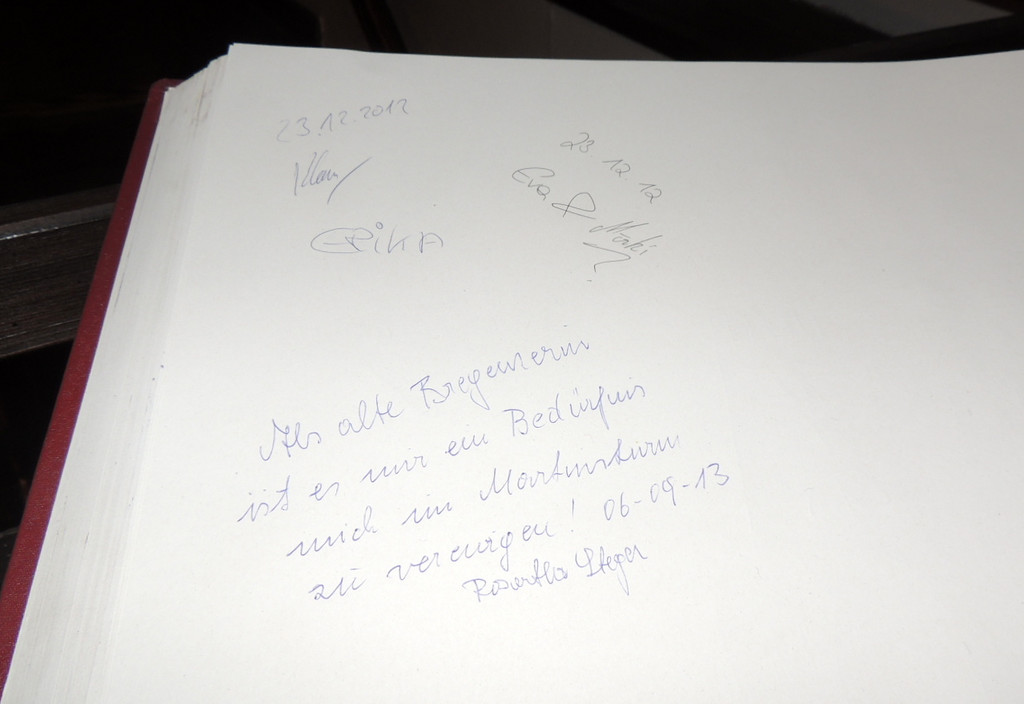 23.12.2012
Klaus
ERiKA
23 12. 12
Eva & Marki
Als alte Bregenzerin
ist es mir ein Bedürfnis
mich im Martinsturm
zu verewigen! 06-09-13
Steger